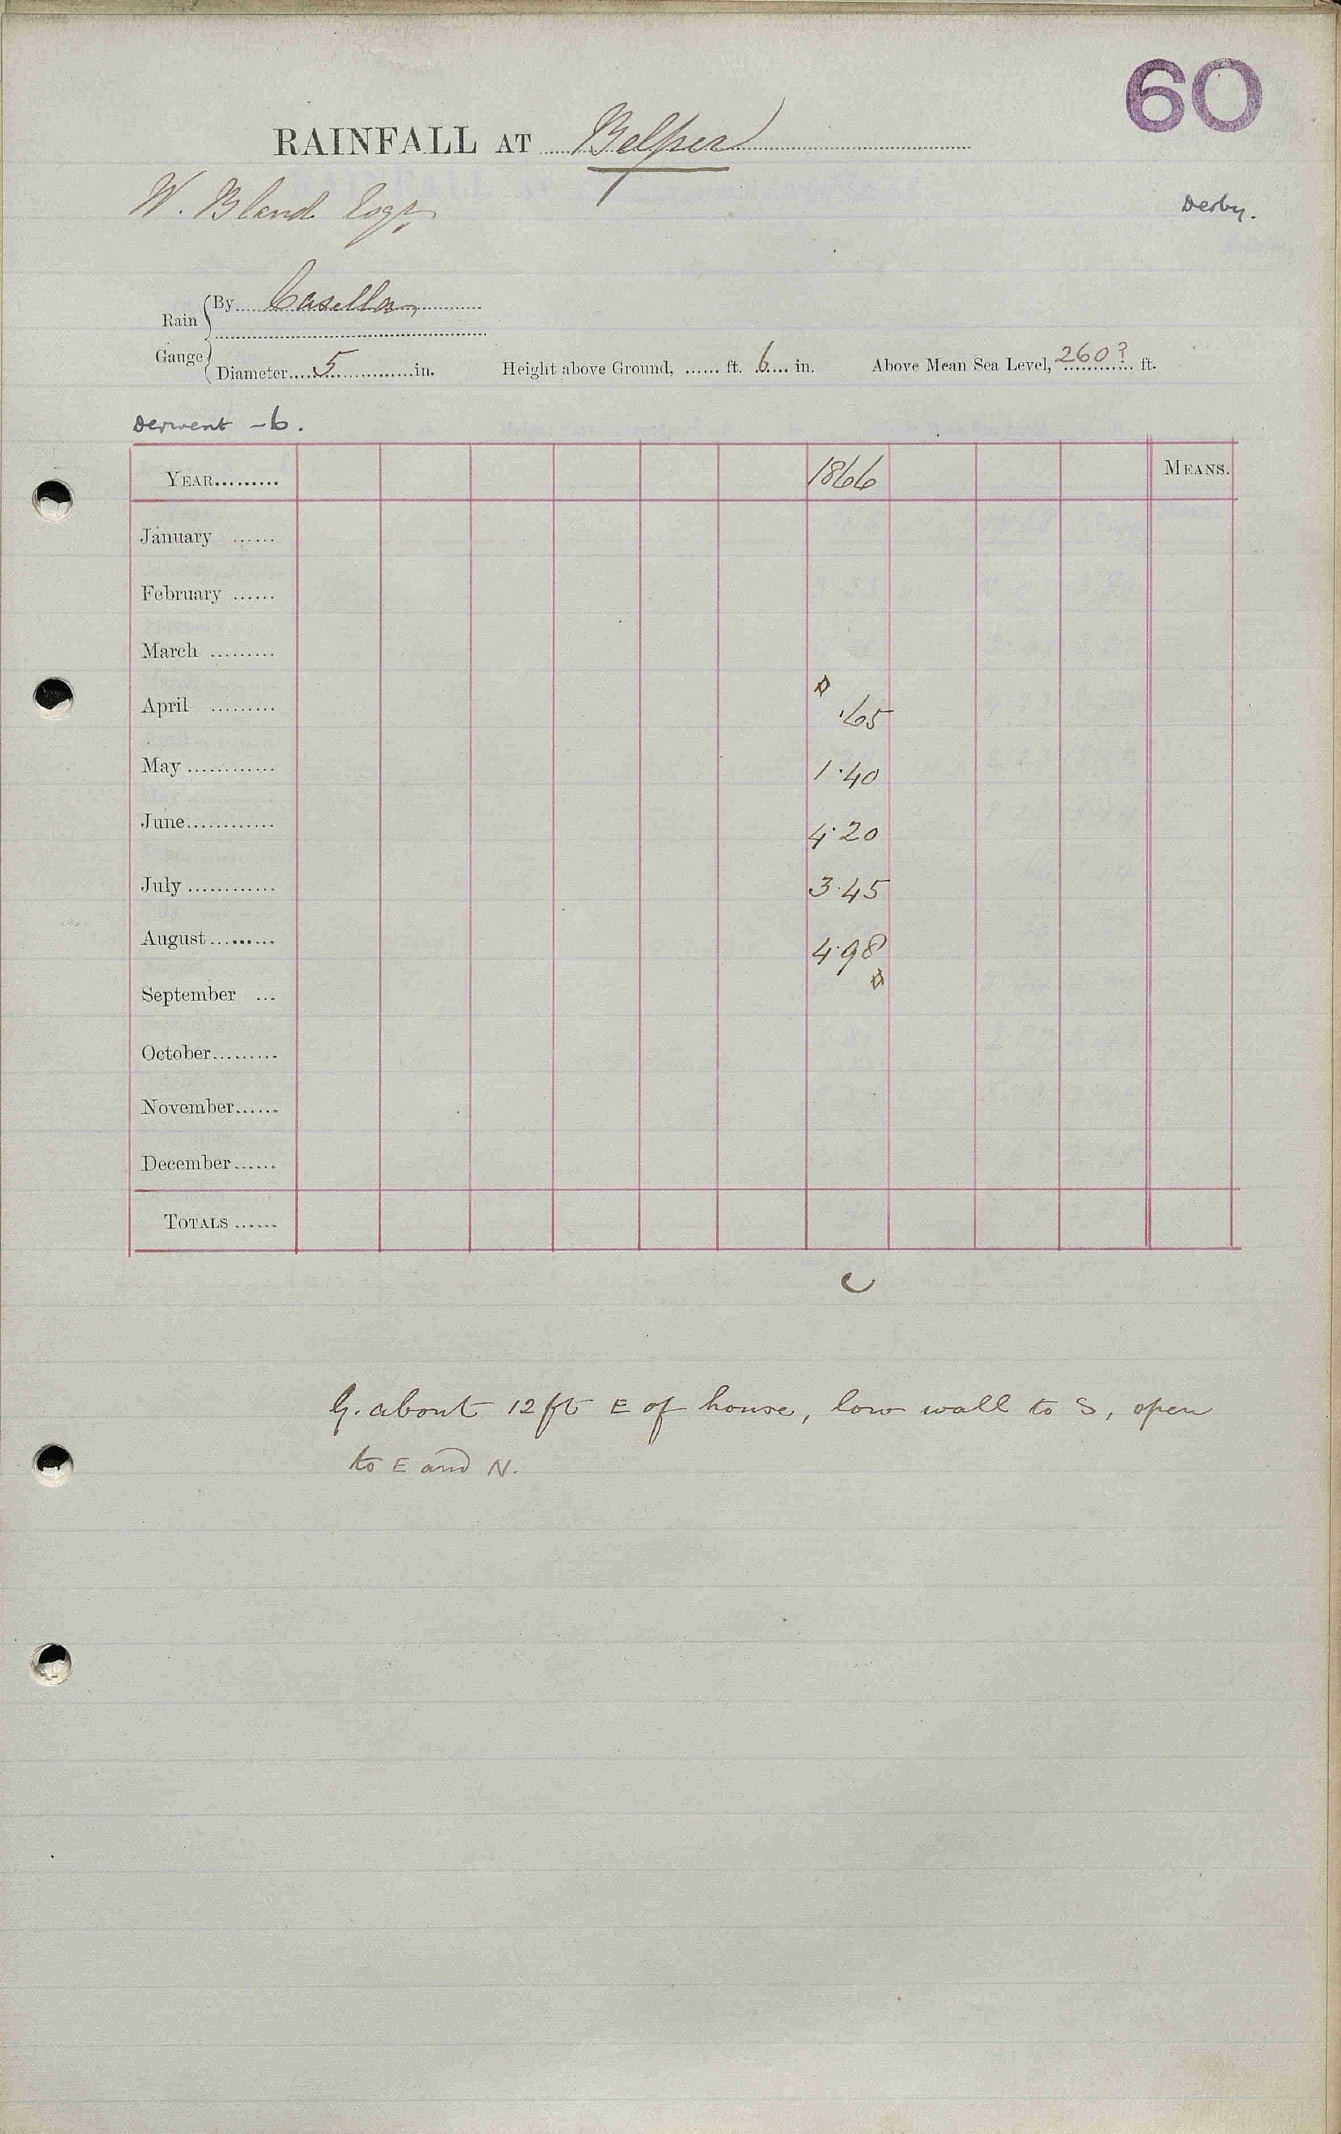 60
RAINFALL AT Belper
W. Bland Esqr.
Derby.
Rain Gauge
By Casella
Diameter 5 in. Height above Ground, ...... ft. 6 in. Above Mean Sea Level, 260? ft.
Derwent – 6.
YEAR......... 1866 MEANS.
January ......
February ......
March .........
April ......... .65
May ............ 1.40
June............ 4.20
July ............ 3.45
August......... 4.98
September ...
October.........
November......
December......
TOTALS ......
G. about 12 ft E of house, low wall to S, open
to E and N.